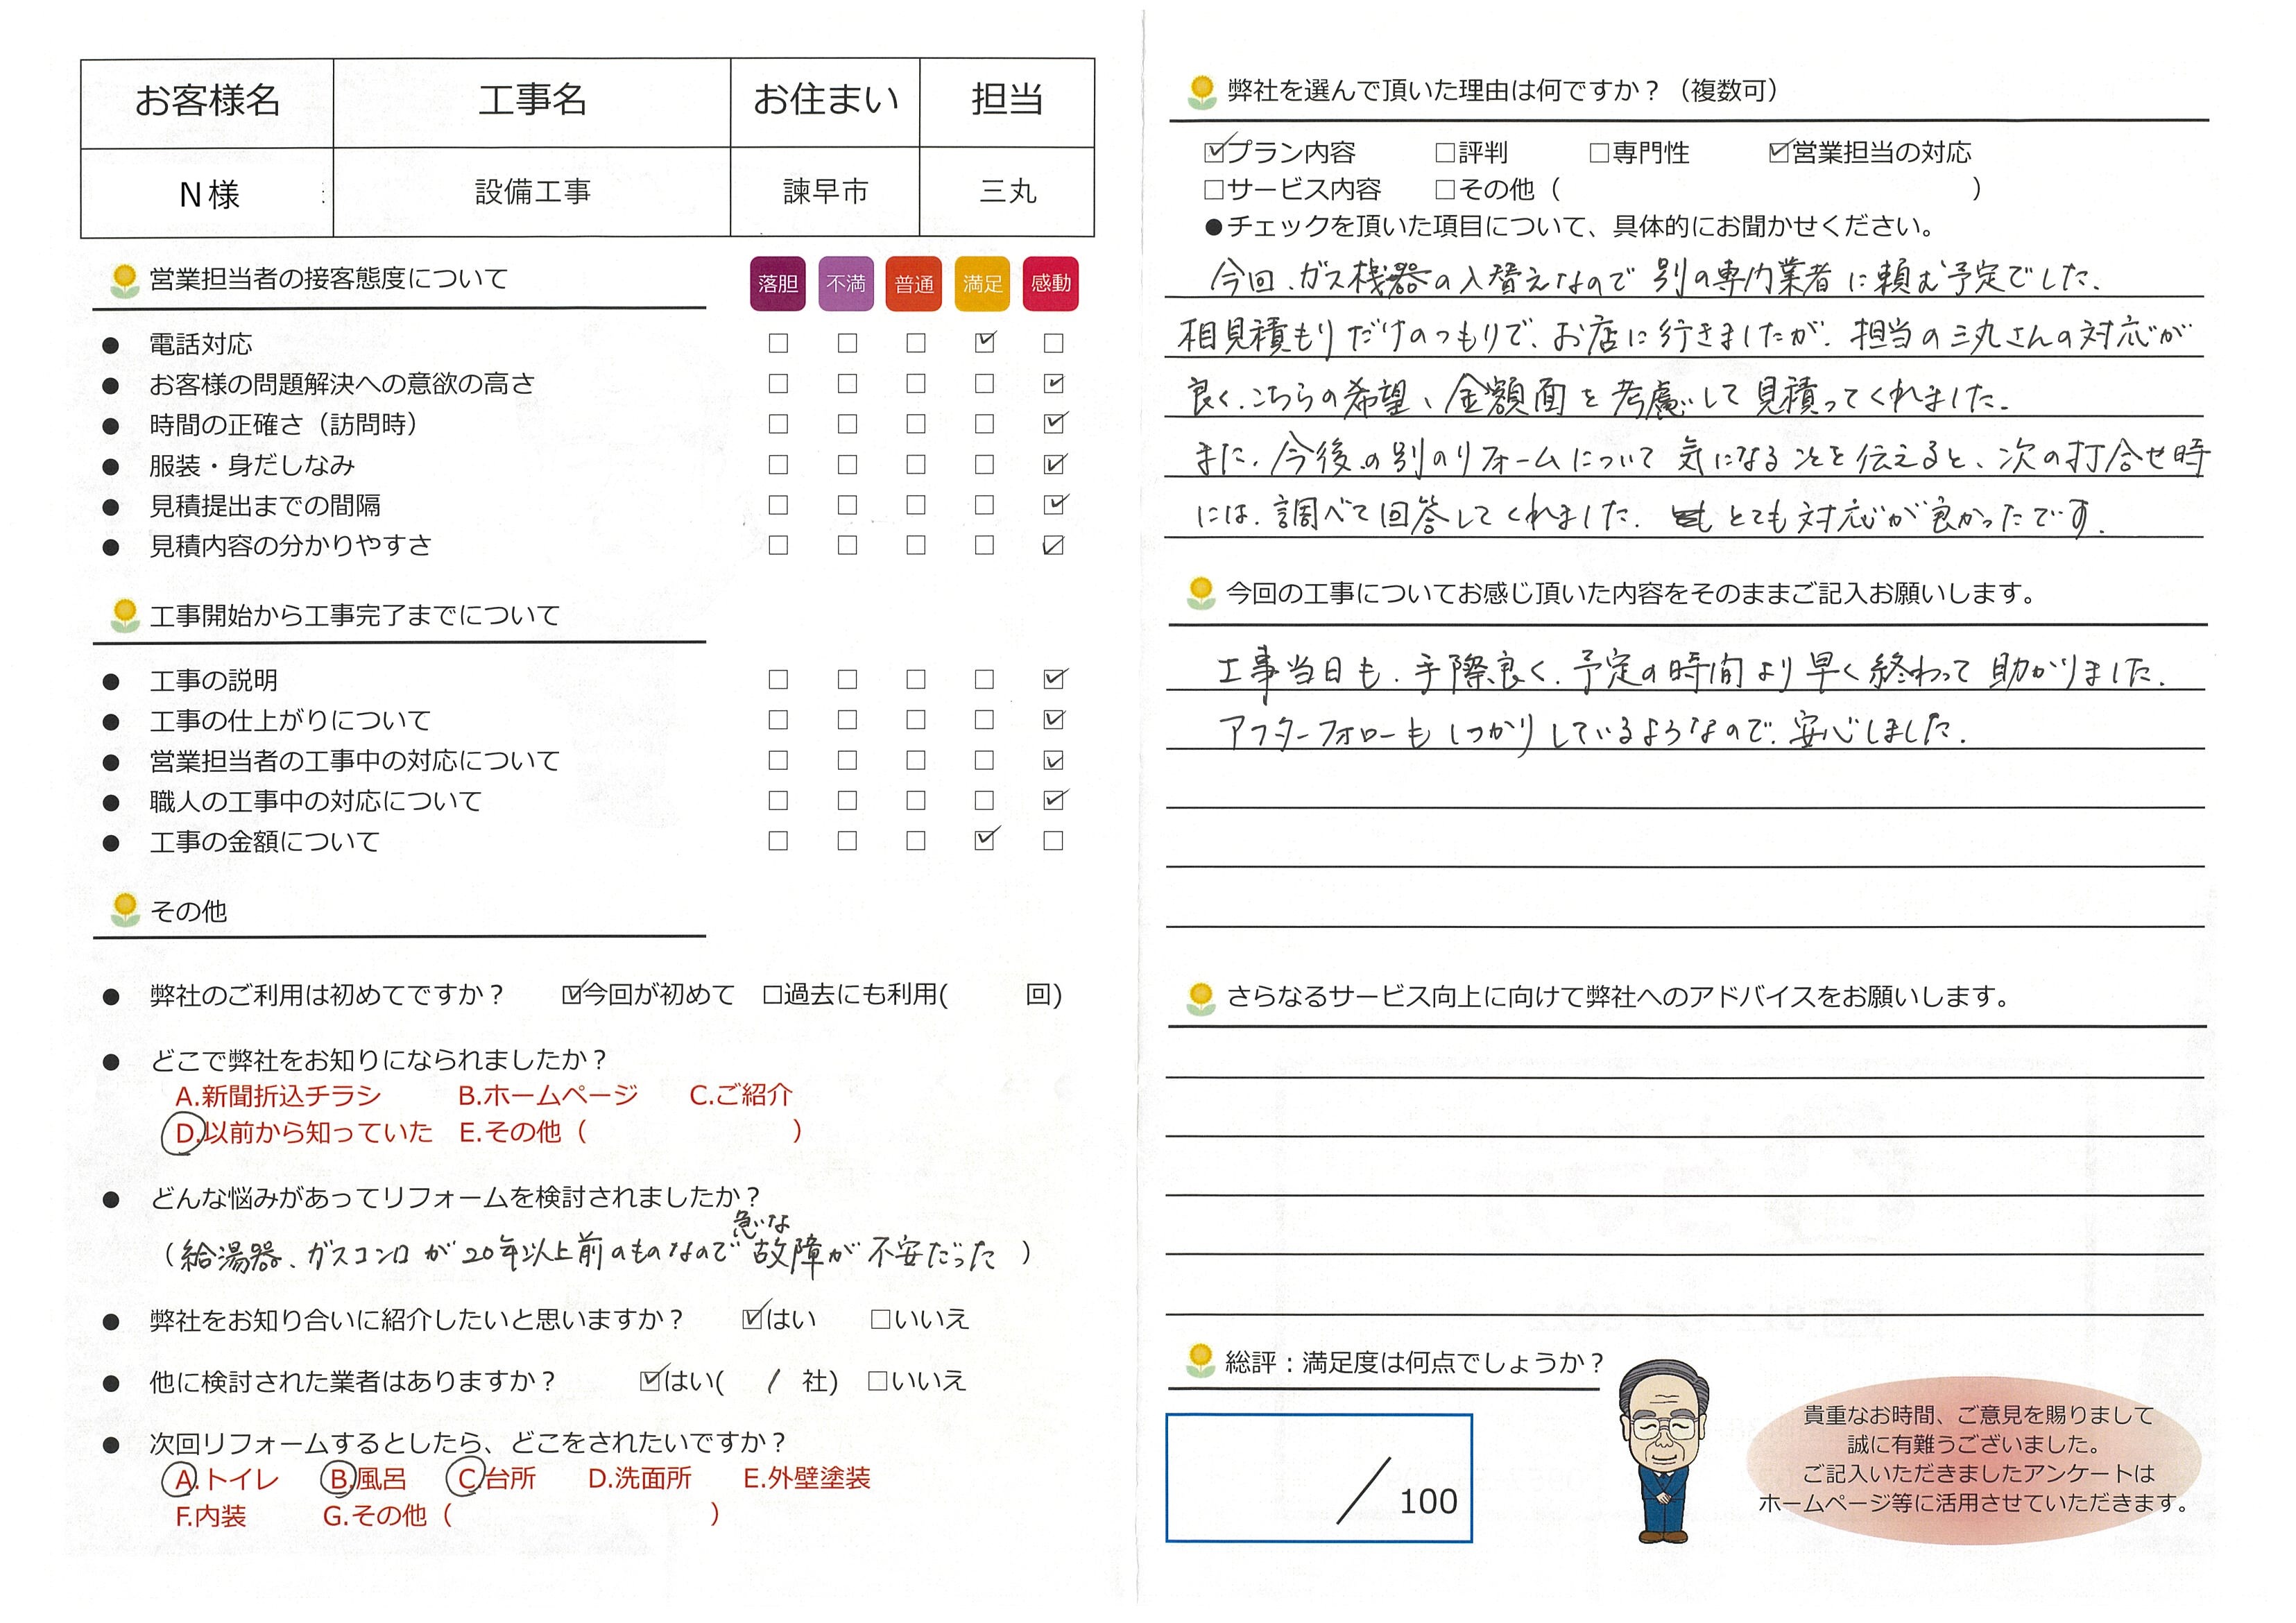 お客様名 工事名 お住まい 担当
N様 設備工事 諫早市 三丸
営業担当者の接客態度について 落胆 不満 普通 満足 感動
● 電話対応 □ □ □ ☑ □
● お客様の問題解決への意欲の高さ □ □ □ □ ☑
● 時間の正確さ（訪問時） □ □ □ □ ☑
● 服装・身だしなみ □ □ □ □ ☑
● 見積提出までの間隔 □ □ □ □ ☑
● 見積内容の分かりやすさ □ □ □ □ ☑
工事開始から工事完了までについて
● 工事の説明 □ □ □ □ ☑
● 工事の仕上がりについて □ □ □ □ ☑
● 営業担当者の工事中の対応について □ □ □ □ ☑
● 職人の工事中の対応について □ □ □ □ ☑
● 工事の金額について □ □ □ ☑ □
その他
● 弊社のご利用は初めてですか？ ☑今回が初めて □過去にも利用( 回)
● どこで弊社をお知りになられましたか？
A.新聞折込チラシ B.ホームページ C.ご紹介
D.以前から知っていた E.その他（ ）
● どんな悩みがあってリフォームを検討されましたか？
急な
（給湯器、ガスコンロが20年以上前のものなので故障が不安だった）
● 弊社をお知り合いに紹介したいと思いますか？ ☑はい □いいえ
● 他に検討された業者はありますか？ ☑はい( 1 社) □いいえ
● 次回リフォームするとしたら、どこをされたいですか？
A.トイレ B.風呂 C.台所 D.洗面所 E.外壁塗装
F.内装 G.その他（ ）
弊社を選んで頂いた理由は何ですか？（複数可）
☑プラン内容 □評判 □専門性 ☑営業担当の対応
□サービス内容 □その他（ ）
●チェックを頂いた項目について、具体的にお聞かせください。
今回、ガス機器の入替えなので別の専門業者に頼む予定でした。
相見積もりだけのつもりで、お店に行きましたが、担当の三丸さんの対応が
良く、こちらの希望、金額面を考慮して見積ってくれました。
また、今後の別のリフォームについて気になることを伝えると、次の打合せ時
には、調べて回答してくれました。とても対応が良かったです。
今回の工事についてお感じ頂いた内容をそのままご記入お願いします。
工事当日も、手際良く、予定の時間より早く終わって助かりました。
アフターフォローもしっかりしているようなので、安心しました。
さらなるサービス向上に向けて弊社へのアドバイスをお願いします。
総評：満足度は何点でしょうか？
／100
貴重なお時間、ご意見を賜りまして
誠に有難うございました。
ご記入いただきましたアンケートは
ホームページ等に活用させていただきます。